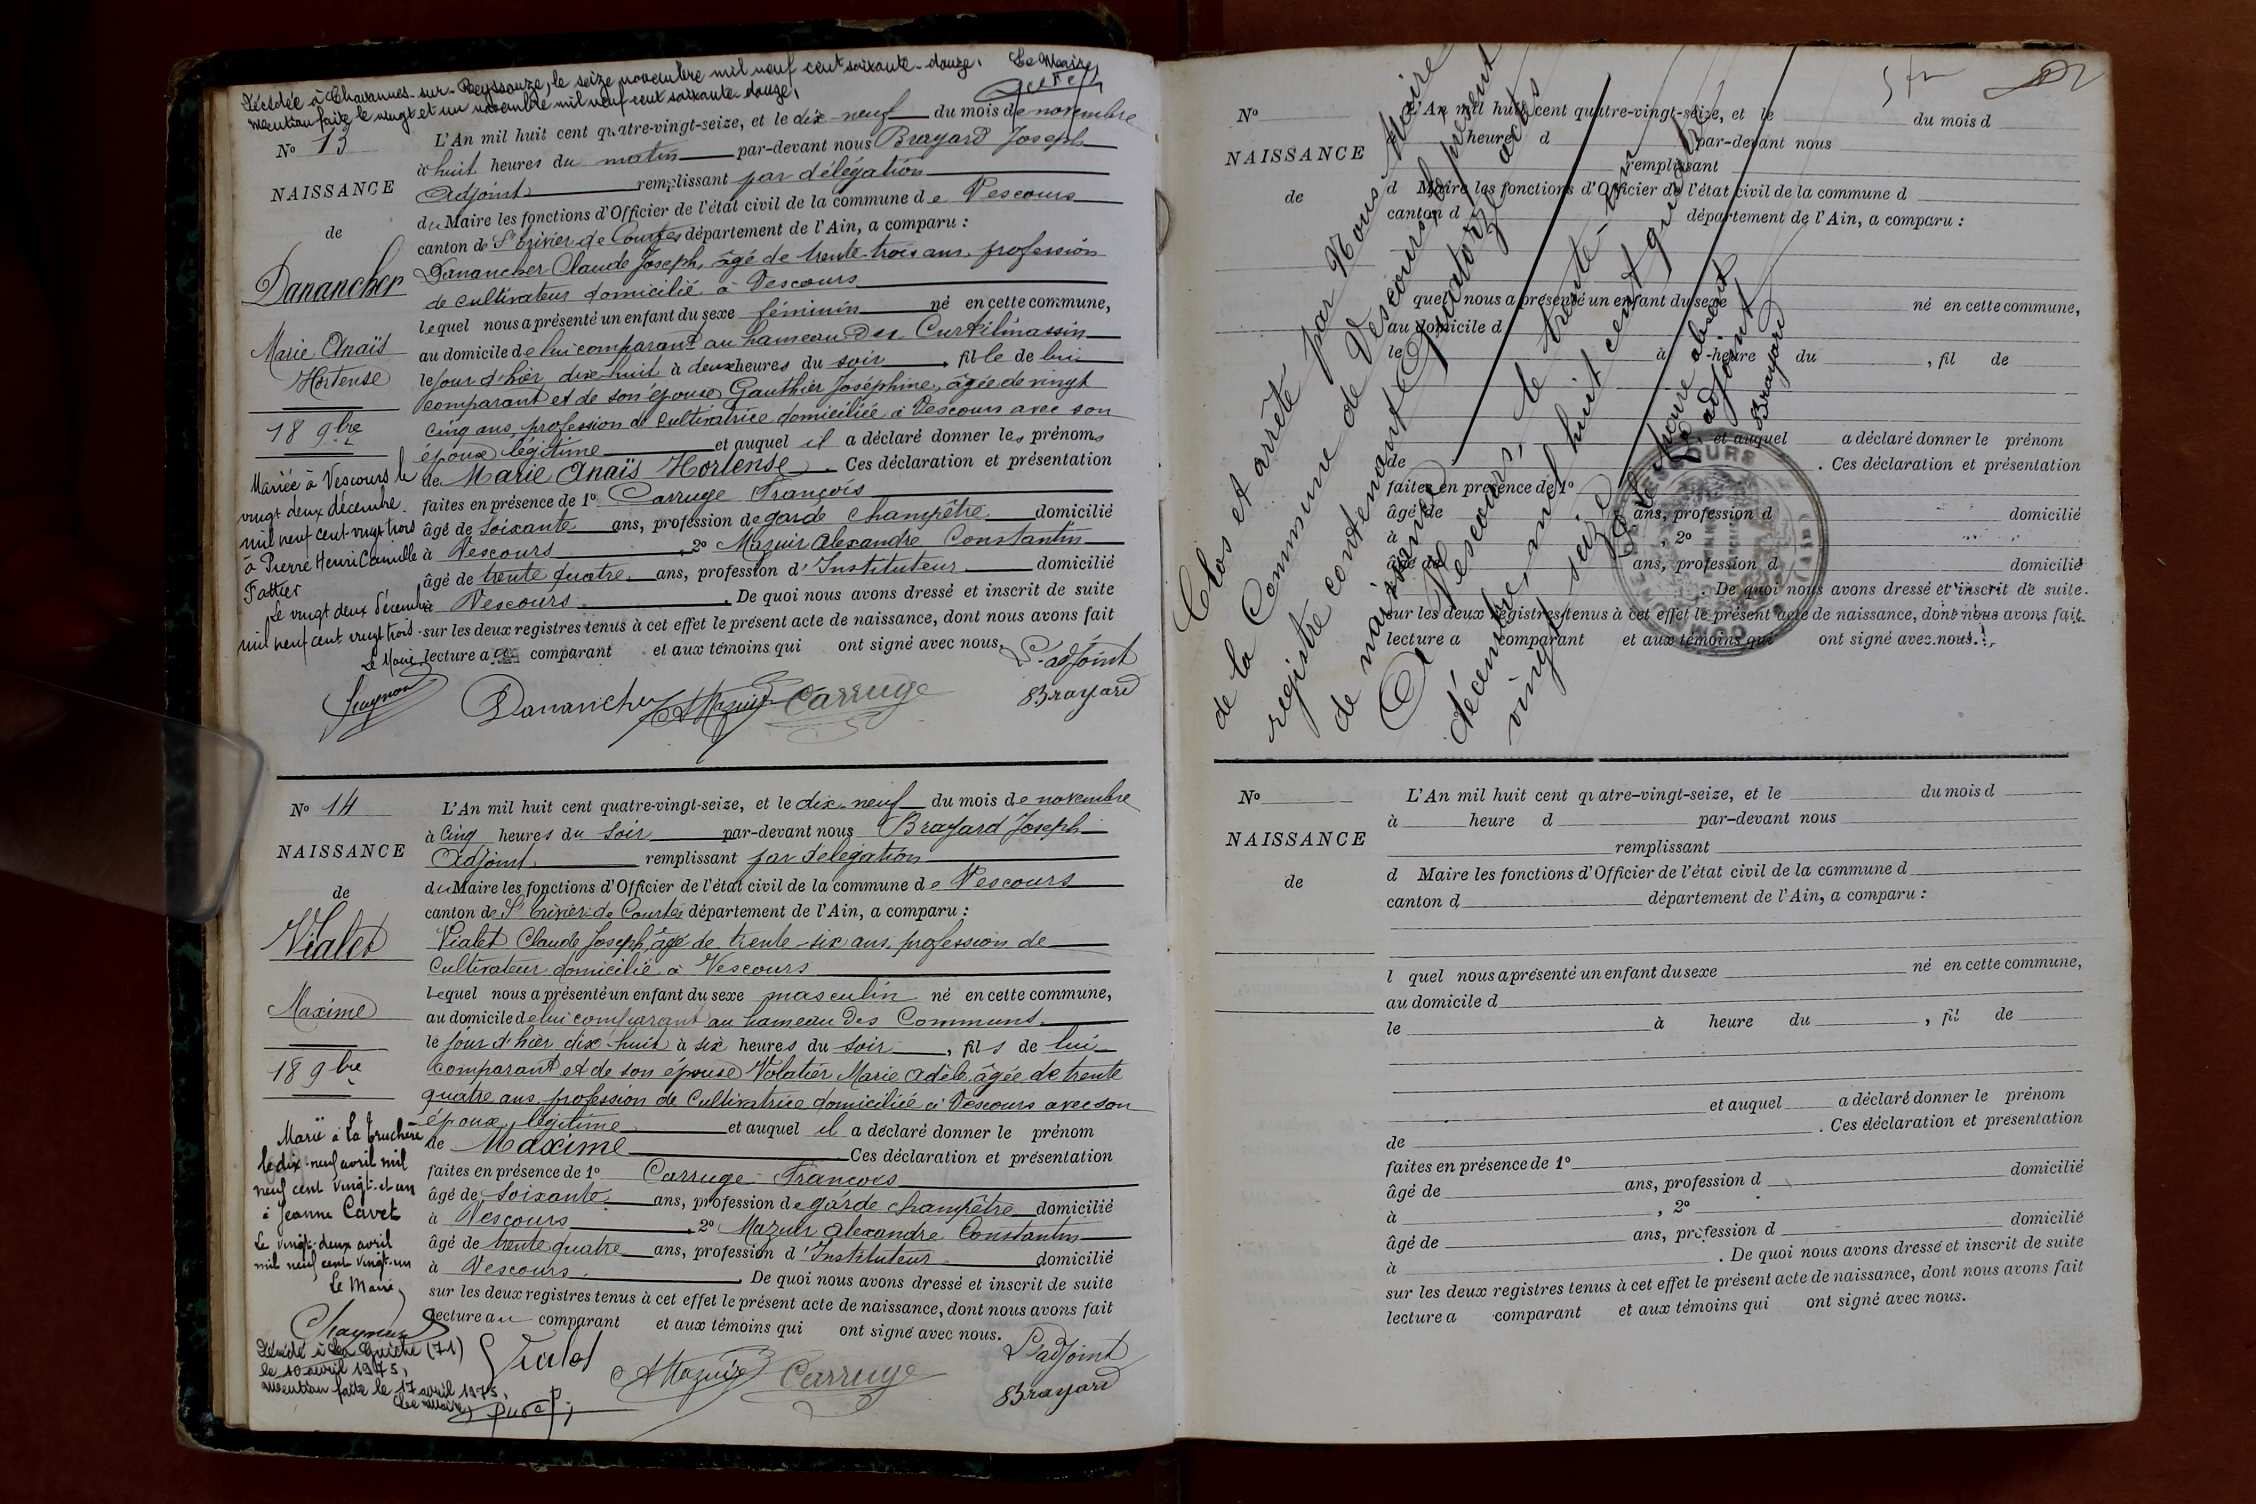 Décédée à Chavannes-sur-Reyssouze, le seize novembre mil neuf cent soixante-douze. Le Maire,
mention faite le vingt et un novembre mil neuf cent soixante-douze,
N° 13
NAISSANCE
de
Danancher
Marie Anaïs
Hortense
18 9bre
Mariée à Vescours le
vingt deux décembre
mil neuf cent vingt trois
à Pierre Henri Camille
Fattier
Le vingt deux décembre
mil neuf cent vingt trois
Le Maire
L'An mil huit cent quatre-vingt-seize, et le dix-neuf du mois de novembre
à huit heures du matin par-devant nous Brayard Joseph
Adjoint remplissant par délégation
du Maire les fonctions d'Officier de l'état civil de la commune de Vescours
canton de St Trivier-de-Courtes département de l'Ain, a comparu :
Danancher Claude Joseph, âgé de trente-trois ans, profession
de cultivateur domicilié à Vescours
lequel nous a présenté un enfant du sexe féminin né en cette commune,
au domicile de lui comparant au hameau des Curtilmassin
le jour d'hier dix-huit à deux heures du soir, fille de lui
comparant et de son épouse Gauthier Joséphine, âgée de vingt
cinq ans, profession de cultivatrice domiciliée à Vescours avec son
époux légitime et auquel il a déclaré donner les prénoms
de Marie Anaïs Hortense. Ces déclaration et présentation
faites en présence de 1° Carruge François
âgé de soixante ans, profession de garde champêtre domicilié
à Vescours, 2° Mazuir Alexandre Constantin
âgé de trente quatre ans, profession d'Instituteur domicilié
à Vescours. De quoi nous avons dressé et inscrit de suite
sur les deux registres tenus à cet effet le présent acte de naissance, dont nous avons fait
lecture au comparant et aux témoins qui ont signé avec nous.
L'adjoint
Danancher AMazuir Carruge Brayard
N° 14
NAISSANCE
de
Vialet
Maxime
18 9bre
Marié à La Truchère
le dix-neuf avril mil
neuf cent vingt-et-un
à Jeanne Cavet
Le vingt-deux avril
mil neuf cent vingt-un
Le Maire
Décédé à La Guiche (71)
le 10 avril 1975,
mention faite le 17 avril 1975,
Le Maire,
L'An mil huit cent quatre-vingt-seize, et le dix-neuf du mois de novembre
à cinq heures du soir par-devant nous Brayard Joseph
Adjoint remplissant par délégation
du Maire les fonctions d'Officier de l'état civil de la commune de Vescours
canton de St Trivier-de-Courtes département de l'Ain, a comparu :
Vialet Claude Joseph, âgé de trente-six ans, profession de
cultivateur domicilié à Vescours
Lequel nous a présenté un enfant du sexe masculin né en cette commune,
au domicile de lui comparant au hameau des Communs
le jour d'hier dix-huit à six heures du soir, fils de lui
comparant et de son épouse Volatier Marie Adèle, âgée de trente
quatre ans, profession de cultivatrice domiciliée à Vescours avec son
époux légitime et auquel il a déclaré donner le prénom
de Maxime Ces déclaration et présentation
faites en présence de 1° Carruge François
âgé de soixante ans, profession de garde champêtre domicilié
à Vescours, 2° Mazuir Alexandre Constantin
âgé de trente quatre ans, profession d'Instituteur domicilié
à Vescours. De quoi nous avons dressé et inscrit de suite
sur les deux registres tenus à cet effet le présent acte de naissance, dont nous avons fait
lecture au comparant et aux témoins qui ont signé avec nous.
L'adjoint
Vialet AMazuir Carruge Brayard
N°
NAISSANCE
de
L'An mil huit cent quatre-vingt-seize, et le du mois d
heure d par-devant nous
remplissant
d Maire les fonctions d'Officier de l'état civil de la commune d
canton d département de l'Ain, a comparu :
quel nous a présenté un enfant du sexe né en cette commune,
au domicile d
le à heure du , fil de
et auquel a déclaré donner le prénom
de . Ces déclaration et présentation
faites en présence de 1°
âgé de ans, profession d domicilié
à , 2°
âgé de ans, profession d domicilié
. De quoi nous avons dressé et inscrit de suite.
sur les deux registres tenus à cet effet le présent acte de naissance, dont nous avons fait
lecture a comparant et aux témoins qui ont signé avec nous.
Clos et arrêté par Nous Maire
de la Commune de Vescours le présent
registre contenant quatorze actes
de naissance
A Vescours, le trente-un
décembre mil huit cent quatre
vingt seize
Le Maire absent
L'adjoint
Brayard
VESCOURS
(AIN)
N°
NAISSANCE
de
L'An mil huit cent quatre-vingt-seize, et le du mois d
à heure d par-devant nous
remplissant
d Maire les fonctions d'Officier de l'état civil de la commune d
canton d département de l'Ain, a comparu :
l quel nous a présenté un enfant du sexe né en cette commune,
au domicile d
le à heure du , fil de
et auquel a déclaré donner le prénom
de . Ces déclaration et présentation
faites en présence de 1°
âgé de ans, profession d domicilié
à , 2°
âgé de ans, profession d domicilié
à . De quoi nous avons dressé et inscrit de suite
sur les deux registres tenus à cet effet le présent acte de naissance, dont nous avons fait
lecture a comparant et aux témoins qui ont signé avec nous.